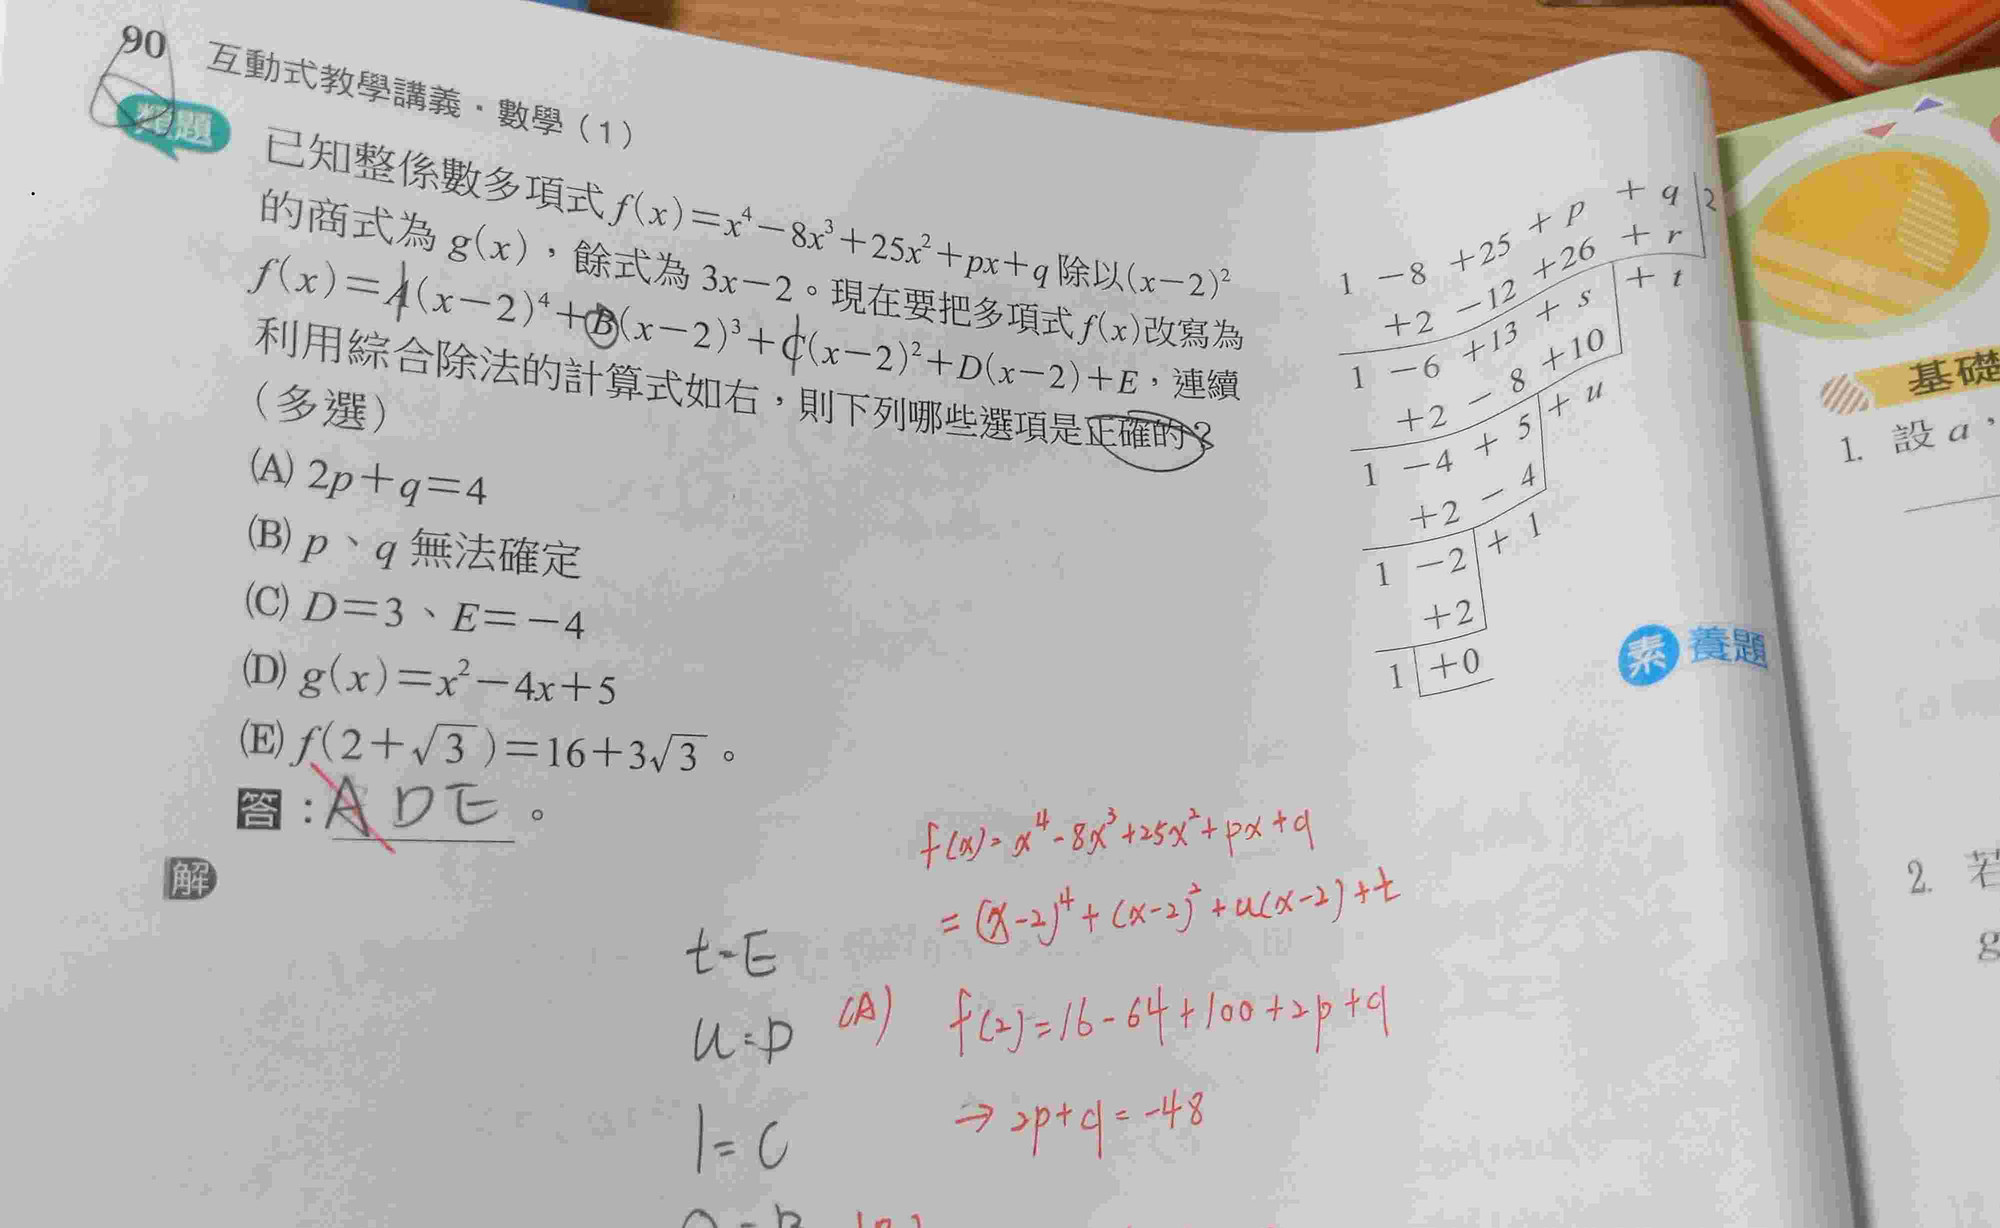 90 互動式教學講義・數學（1）
難題
已知整係數多項式 f(x)=x⁴-8x³+25x²+px+q 除以(x-2)²
的商式為 g(x)，餘式為 3x-2。現在要把多項式 f(x)改寫為
f(x)=A(x-2)⁴+B(x-2)³+C(x-2)²+D(x-2)+E，連續
利用綜合除法的計算式如右，則下列哪些選項是正確的？
（多選）
(A) 2p+q=4
(B) p、q 無法確定
(C) D=3、E=-4
(D) g(x)=x²-4x+5
(E) f(2+√3)=16+3√3。
答：A D E。
解
1 -8 +25 + p + q 2
+2 -12 +26 + r
1 -6 +13 + s + t
+2 - 8 +10
1 -4 + 5 + u
+2 - 4
1 -2 + 1
+2
1 +0
素養題
f(x)=x⁴-8x³+25x²+px+q
=(x-2)⁴+(x-2)²+u(x-2)+t
t=E
u=D
1=C
(A) f(2)=16-64+100+2p+q
⇒ 2p+q=-48
基礎
1. 設 a，
2. 若
g